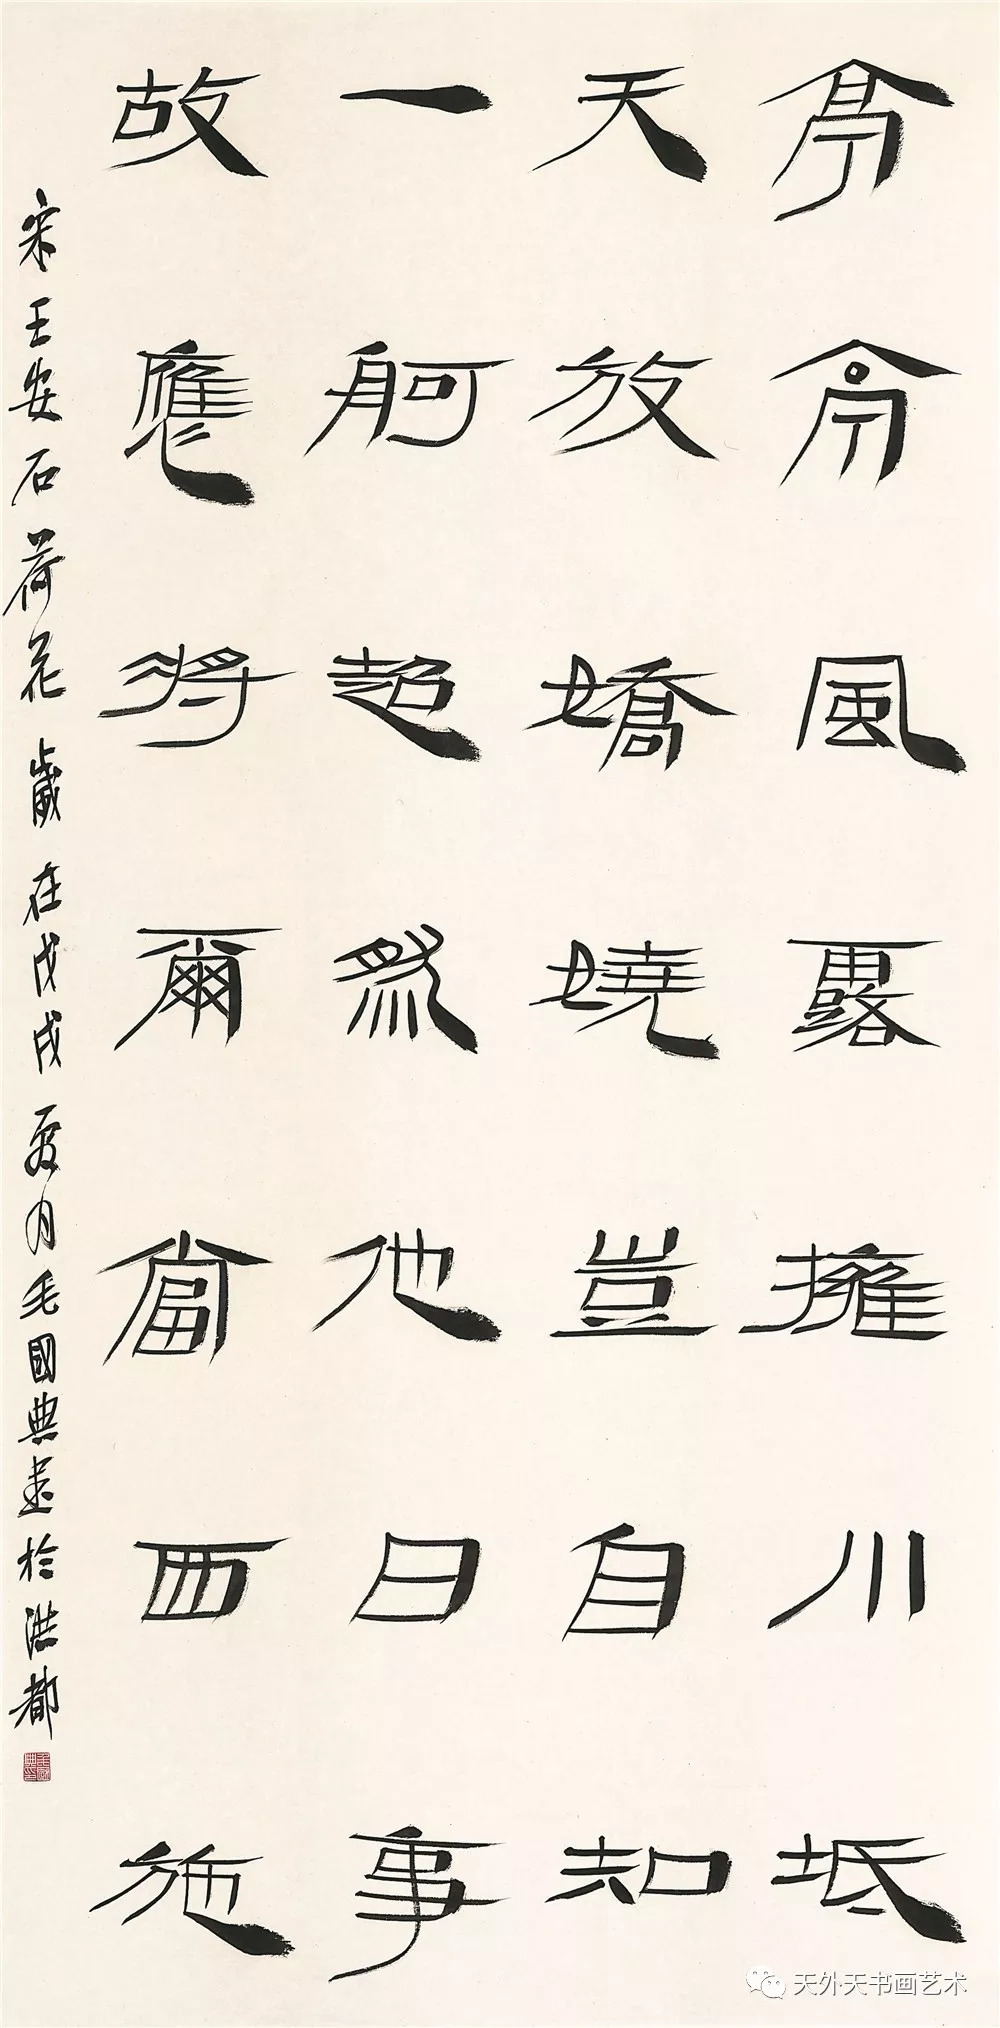 亭亭風露擁川坻
天放嬌嬈豈自知
一舸超然他日事
故應將爾當西施
宋王安石荷花歲在戊戌夏月毛國典書於洪都
毛國典印
天外天书画艺术